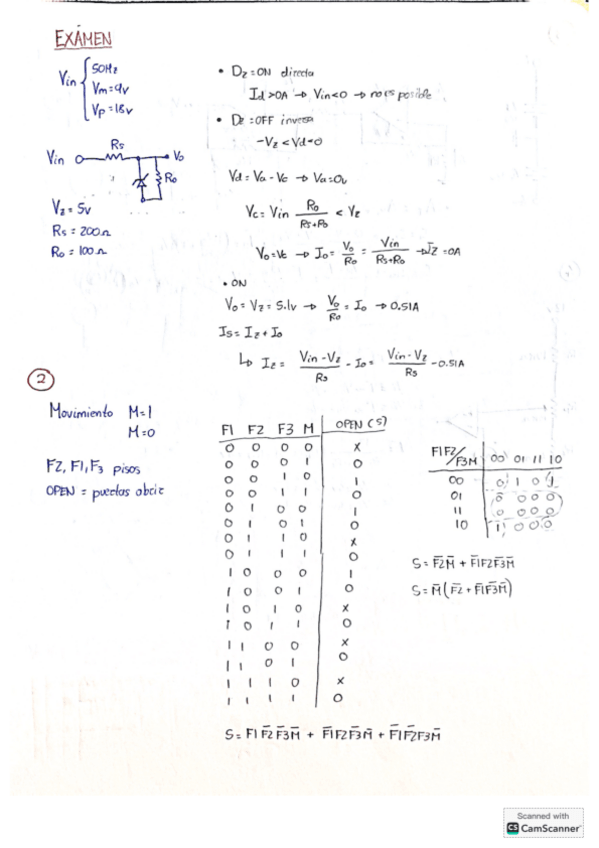 EXÁMEN
Vin { 50Hz
Vm=9v
Vp=18v
Vin Rs Vo
Ro
Vz = 5v
Rs = 200Ω
Ro = 100Ω
• Dz=ON directa
Id>0A → Vin<0 → no es posible
• Dz=OFF inversa
-Vz < Vd=0
Vd = Va - Vc → Va=0v
Vc = Vin Ro/(Rs+Ro) < Vz
Vo=Vc → Io = Vo/Ro = Vin/(Rs+Ro) → Iz=0A
• ON
Vo = Vz = 5.1v → Vo/Ro = Io → 0.51A
Is = Iz + Io
↳ Iz = (Vin-Vz)/Rs - Io = (Vin-Vz)/Rs - 0.51A
2
Movimiento M=1
M=0
F2, F1, F3 pisos
OPEN = puertas abrir
F1 F2 F3 M OPEN (S)
0 0 0 0 X
0 0 0 1 0
0 0 1 0 1
0 0 1 1 0
0 1 0 0 1
0 1 0 1 0
0 1 1 0 X
0 1 1 1 0
1 0 0 0 1
1 0 0 1 0
1 0 1 0 X
1 0 1 1 0
1 1 0 0 X
1 1 0 1 0
1 1 1 0 X
1 1 1 1 0
F1F2/F3M 00 01 11 10
00 0 1 0 1
01 0 0 0 0
11 0 0 0 0
10 1 0 0 0
S = F̅2M̅ + F̅1F2F̅3M̅
S = M̅(F̅2 + F̅1F̅3M̅)
S = F1F̅2F̅3M̅ + F̅1F2F̅3M̅ + F̅1F̅2F3M̅
Scanned with
CS CamScanner